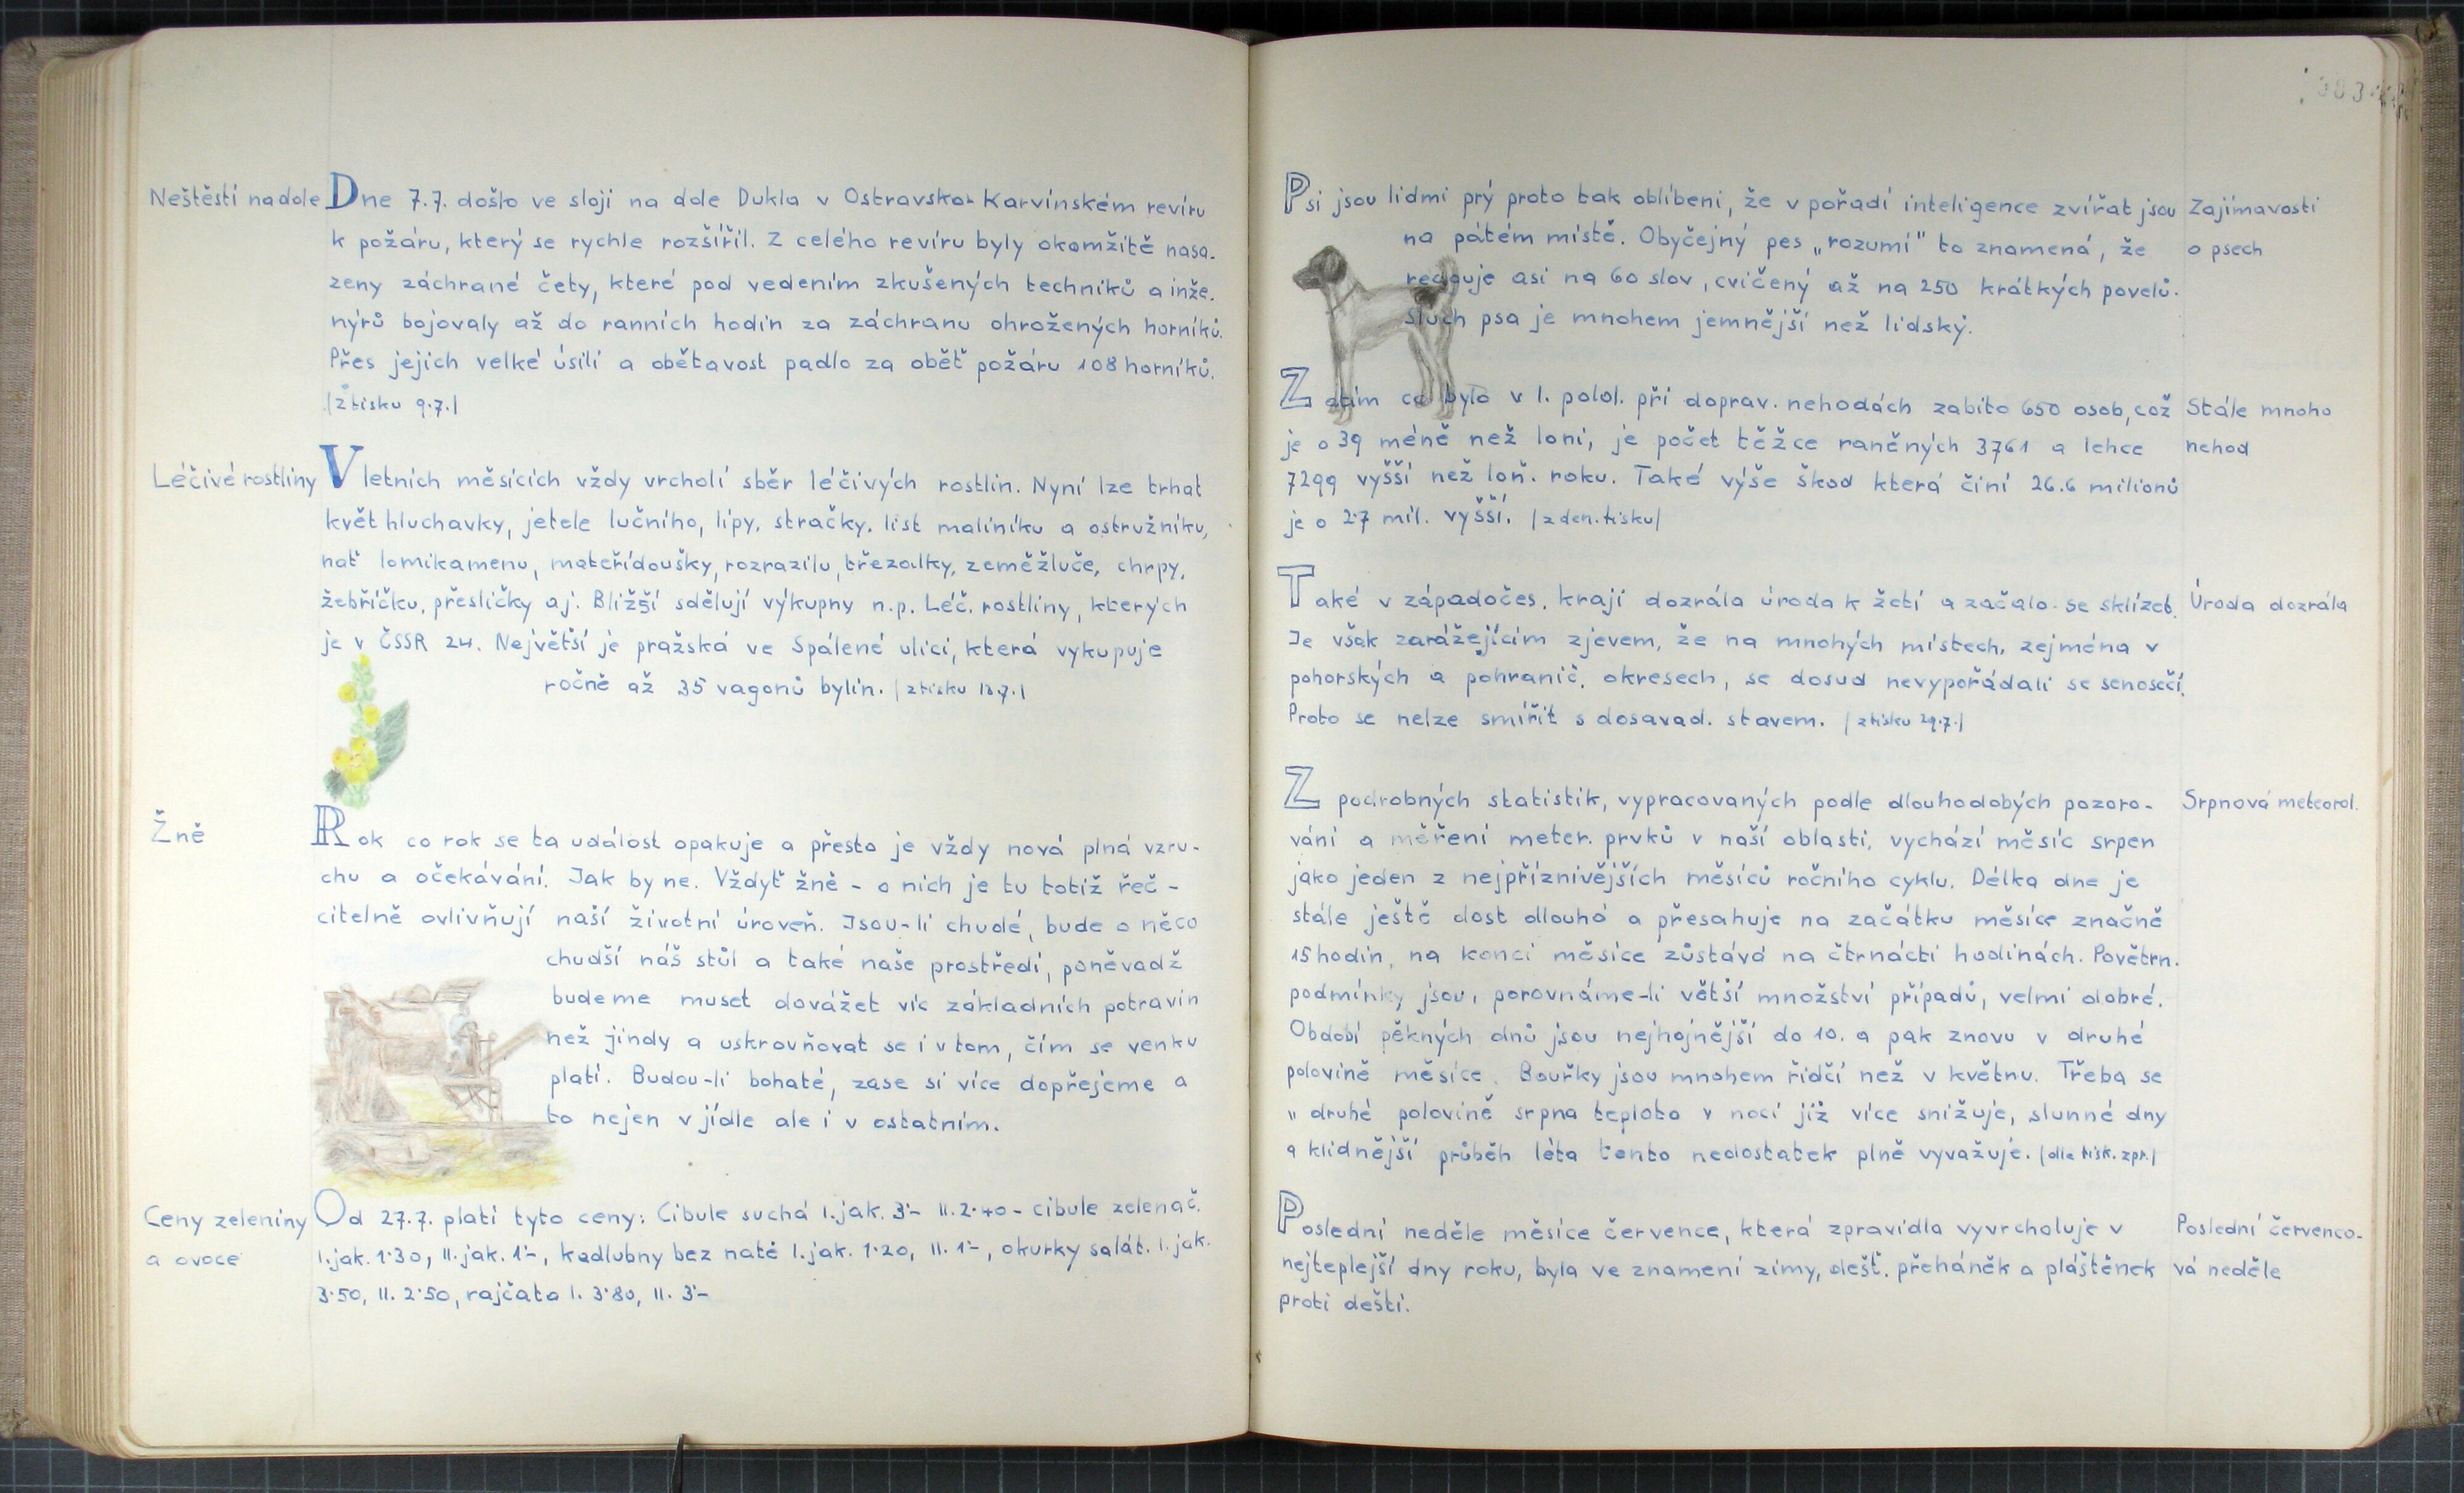 Neštěstí na dole
Dne 7.7. došlo ve sloji na dole Dukla v Ostravsko-Karvinském revíru
k požáru, který se rychle rozšířil. Z celého revíru byly okamžitě nasa-
zeny záchrané čety, které pod vedením zkušených techniků a inže-
nýrů bojovaly až do ranních hodin za záchranu ohrožených horníků.
Přes jejich velké úsilí a obětavost padlo za oběť požáru 108 horníků.
/z tisku 9.7./
Léčivé rostliny
V letních měsících vždy vrcholí sběr léčivých rostlin. Nyní lze trhat
květ hluchavky, jetele lučního, lípy, stračky, list maliníku a ostružníku,
nať lomikamenu, mateřídoušky, rozrazilu, třezalky, zeměžluče, chrpy,
žebříčku, přesličky aj. Bližší sdělují výkupny n.p. Léč. rostliny, kterých
je v ČSSR 24. Největší je pražská ve Spálené ulici, která vykupuje
ročně až 35 vagonů bylin. /z tisku 18.7./
Žně
Rok co rok se ta událost opakuje a přesto je vždy nová plná vzru-
chu a očekávání. Jak by ne. Vždyť žně - o nich je tu totiž řeč -
citelně ovlivňují naší životní úroveň. Jsou-li chudé, bude o něco
chudší náš stůl a také naše prostředí, poněvadž
budeme muset dovážet víc základních potravin
než jindy a uskrovňovat se i v tom, čím se venku
platí. Budou-li bohaté, zase si více dopřejeme a
to nejen v jídle ale i v ostatním.
Ceny zeleniny
a ovoce
Od 27.7. platí tyto ceny: Cibule suchá I.jak. 3·- II. 2·40 - cibule zelenač.
I.jak. 1·30, II.jak. 1·-, kadlubny bez natě I.jak. 1·20, II. 1·-, okurky salát. I.jak.
3·50, II. 2·50, rajčata I. 3·80, II. 3·-
Psi jsou lidmi prý proto tak oblíbeni, že v pořadí inteligence zvířat jsou
na pátém místě. Obyčejný pes „rozumí" to znamená, že
reaguje asi na 60 slov, cvičený až na 250 krátkých povelů.
Sluch psa je mnohem jemnější než lidský.
Zajímavosti
o psech
Zatím co bylo v I. polol. při doprav. nehodách zabito 650 osob, což
je o 39 méně než loni, je počet těžce raněných 3761 a lehce
7299 vyšší než loň. roku. Také výše škod která činí 26.6 milionů
je o 2·7 mil. vyšší. /z den. tisku/
Stále mnoho
nehod
Také v západočes. kraji dozrála úroda k žetí a začalo se sklízet.
Je však zarážejícím zjevem, že na mnohých místech, zejména v
pohorských a pohranič. okresech, se dosud nevypořádali se senosečí.
Proto se nelze smířit s dosavad. stavem. /z tisku 29.7./
Úroda dozrála
Z podrobných statistik, vypracovaných podle dlouhodobých pozoro-
vání a měření meter. prvků v naší oblasti, vychází měsíc srpen
jako jeden z nejpříznivějších měsíců ročního cyklu. Délka dne je
stále ještě dost dlouhá a přesahuje na začátku měsíce značně
15 hodin, na konci měsíce zůstává na čtrnácti hodinách. Povětrn.
podmínky jsou, porovnáme-li větší množství případů, velmi dobré.
Období pěkných dnů jsou nejhojnější do 10. a pak znovu v druhé
polovině měsíce. Bouřky jsou mnohem řidčí než v květnu. Třeba se
v druhé polovině srpna teplota v noci již více snižuje, slunné dny
a klidnější průběh léta tento nedostatek plně vyvažuje. /dle tisk. zpr./
Srpnová meteorol.
Poslední neděle měsíce července, která zpravidla vyvrcholuje v
nejteplejší dny roku, byla ve znamení zimy, dešť. přeháněk a pláštěnek
proti dešti.
Poslední červenco-
vá neděle